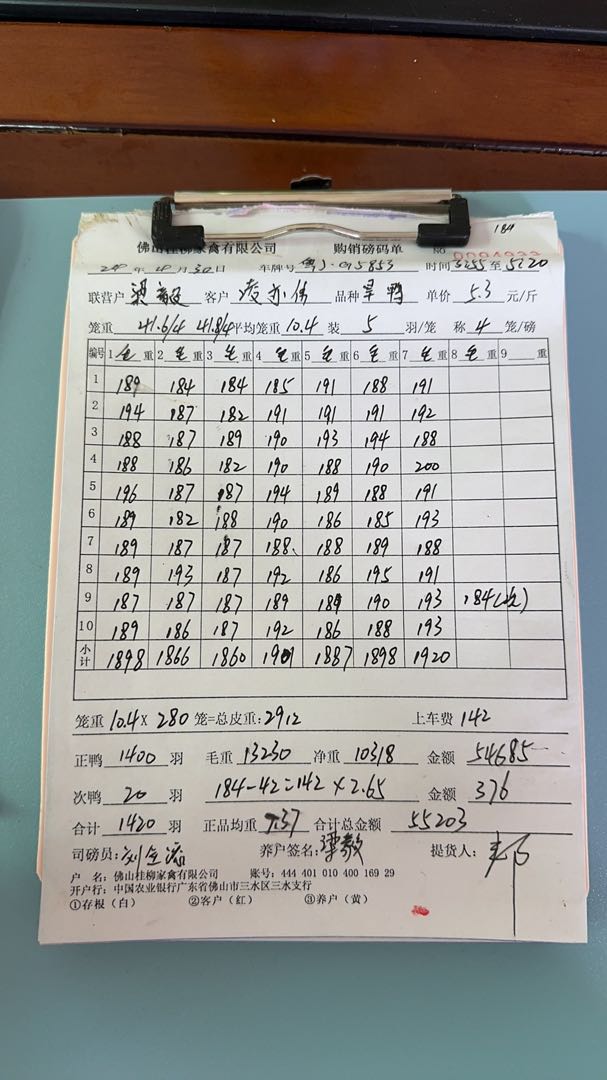 184
佛山桂柳家禽有限公司 购销磅码单 NO
年 月30日 车牌号 粤J·095853 时间 5:20
联营户 客户 凌亦伟 品种 旱鸭 单价 5.3 元/斤
笼重 41.6/4 41.8/4 平均笼重 10.4 装 5 羽/笼 称 4 笼/磅
编号 1 毛 重 2 毛 重 3 毛 重 4 毛 重 5 毛 重 6 毛 重 7 毛 重 8 毛 重 9 重
1 189 184 184 185 191 188 191
2 194 187 182 191 191 191 192
3 188 187 189 190 193 194 188
4 188 186 182 190 188 190 200
5 196 187 187 194 189 188 191
6 189 182 188 190 186 185 193
7 189 187 187 188 188 189 188
8 189 193 187 192 186 195 191
9 187 187 187 189 189 190 193 184(次)
10 189 186 187 192 186 188 193
小计 1898 1866 1860 1901 1887 1898 1920
笼重 10.4 X 280 笼=总皮重: 2912 上车费 142
正鸭 1400 羽 毛重 13230 净重 10318 金额 54685
次鸭 20 羽 184-42=142 X 2.65 金额 376
合计 1420 羽 正品均重 7.37 合计总金额 55203
司磅员: 养户签名: 提货人:
户 名: 佛山桂柳家禽有限公司 账号: 444 401 010 400 169 29
开户行: 中国农业银行广东省佛山市三水区三水支行
①存根（白） ②客户（红） ③养户（黄）